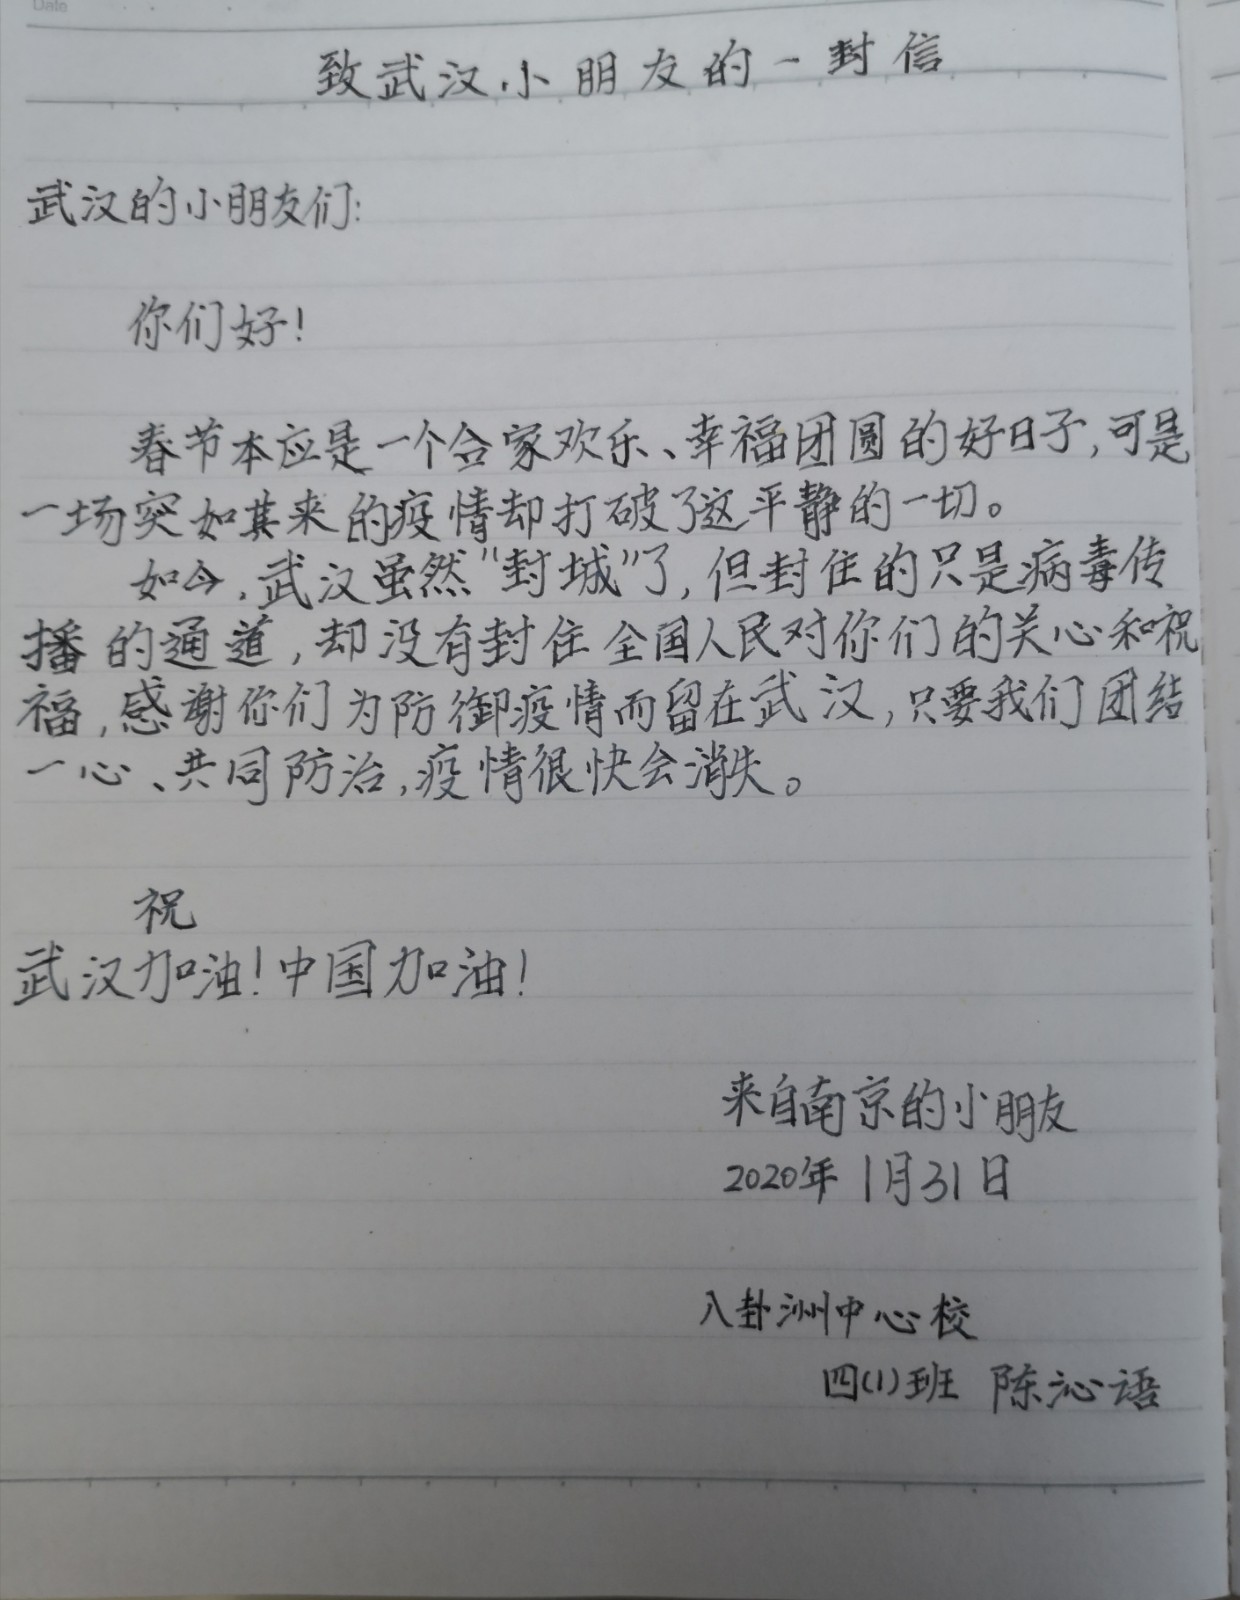 Date
致武汉小朋友的一封信
武汉的小朋友们:
你们好!
春节本应是一个合家欢乐、幸福团圆的好日子,可是
一场突如其来的疫情却打破了这平静的一切。
如今,武汉虽然"封城"了,但封住的只是病毒传
播的通道,却没有封住全国人民对你们的关心和祝
福,感谢你们为防御疫情而留在武汉,只要我们团结
一心、共同防治,疫情很快会消失。
祝
武汉加油!中国加油!
来自南京的小朋友
2020年1月31日
八卦洲中心校
四(1)班 陈沁语